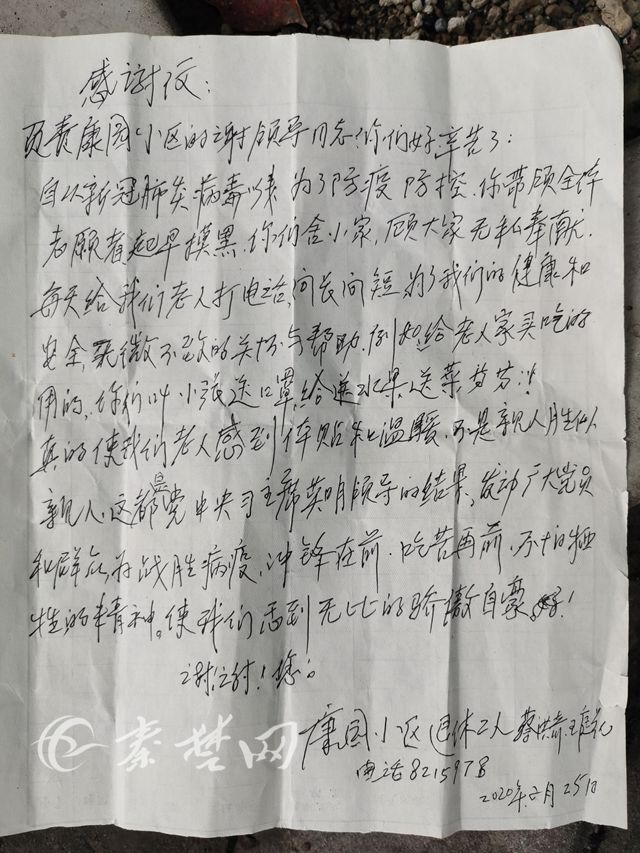 感谢信：
康园小区的谢领导同志你们好辛苦了：
自从新冠肺炎病毒以来为了防疫防控.你带领全体
志愿者起早摸黑.你们舍小家,顾大家无私奉献.
每天给我们老人打电话,问长问短,为了我们的健康和
安全,无微不至的关怀与帮助.例如给老人家买吃的
用的,你们叫小张送口罩,给送水果,送菜等等!!
真的使我们老人感到体贴和温暖,不是亲人胜似
亲人.这都是党中央习主席英明领导的结果,发动广大党员
和群众,为战胜病疫,冲锋在前.吃苦再前.不怕牺
牲的精神。使我们感到无比的骄傲自豪!
谢谢!您。
康园小区退休工人蔡
电话8215978
2020年2月25日
秦楚网